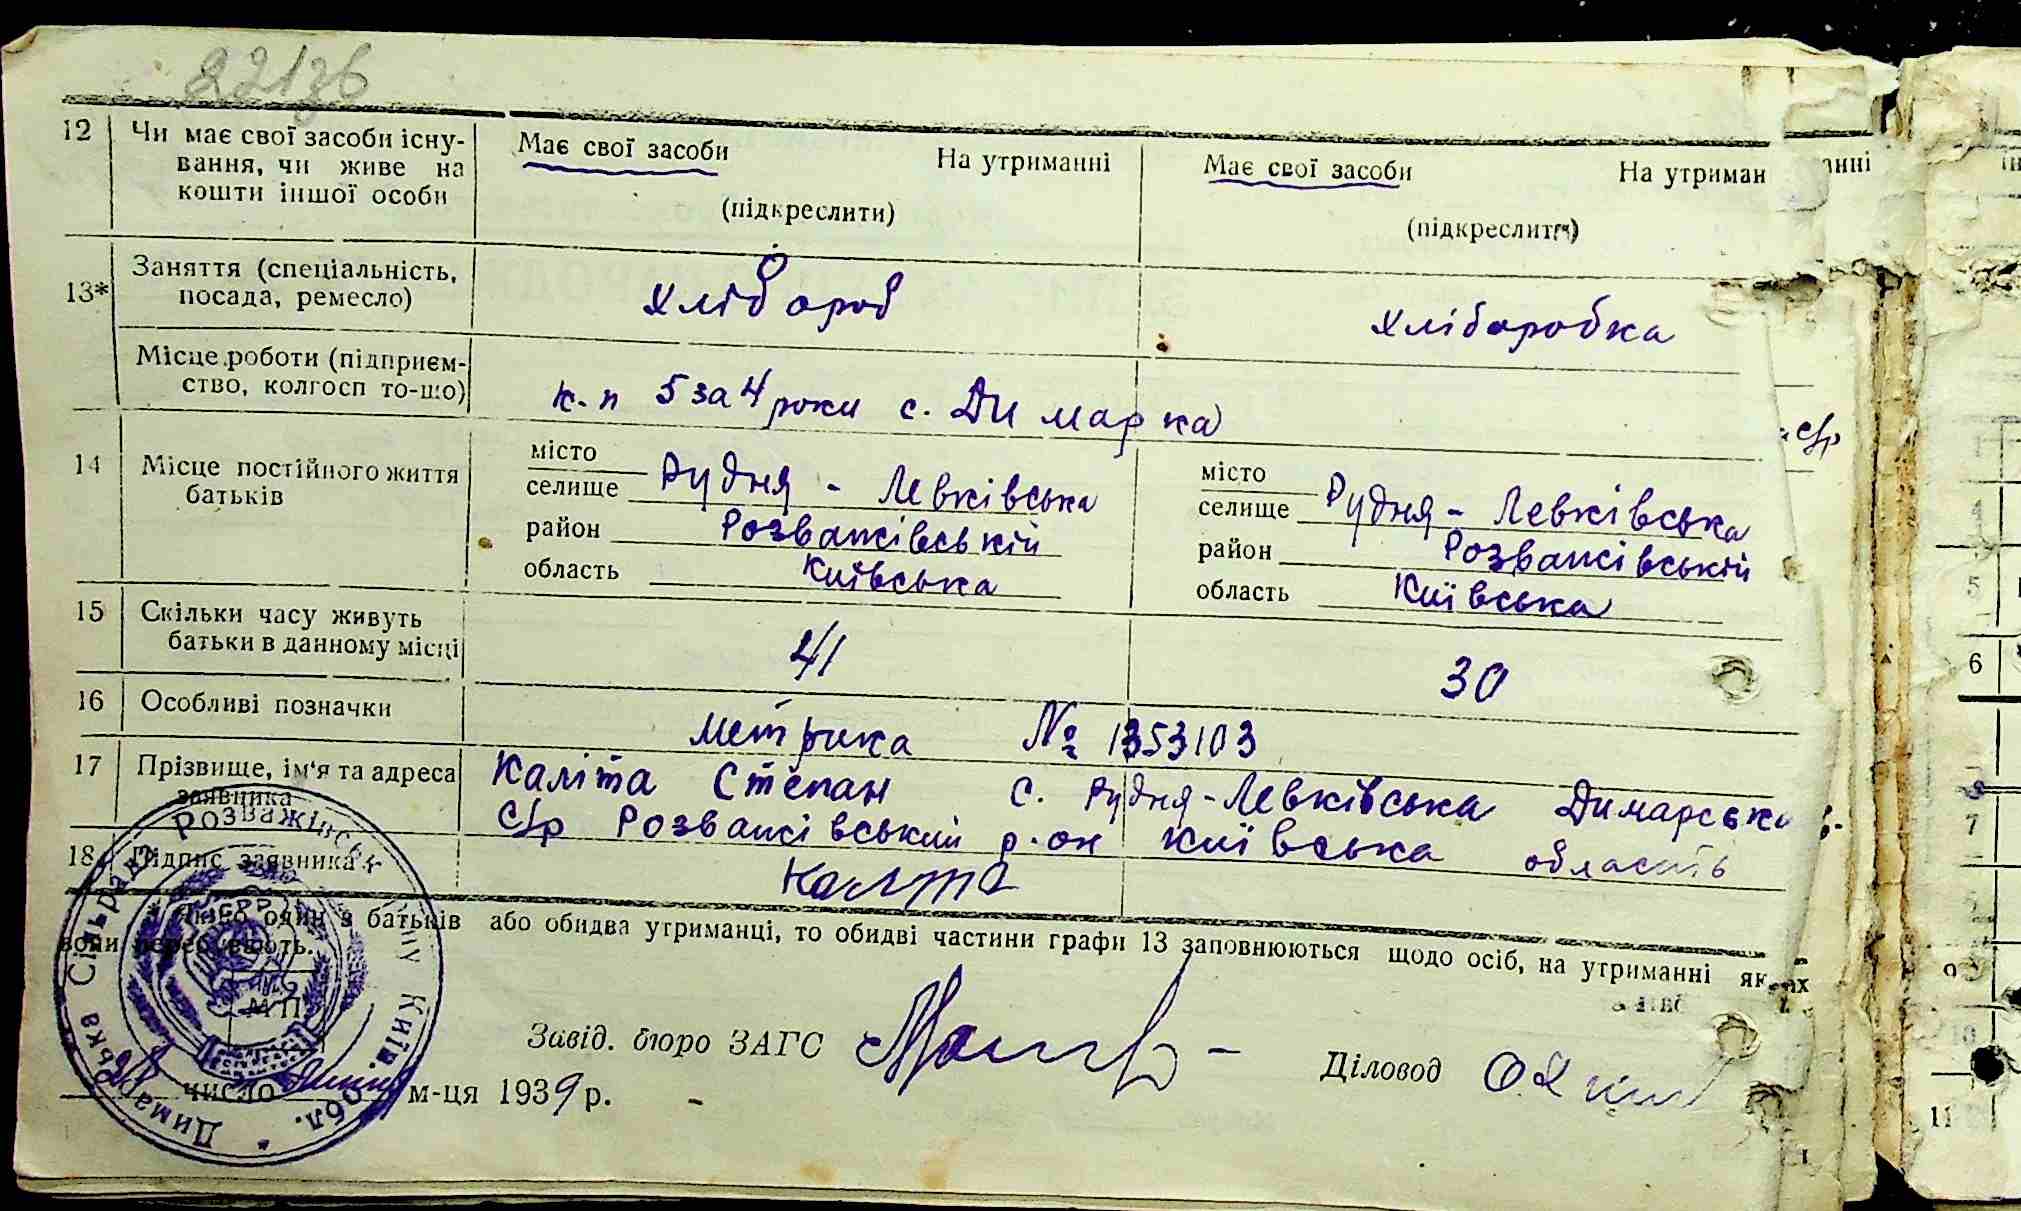 22136
12 Чи має свої засоби існу-
вання, чи живе на
кошти іншої особи
Має свої засоби На утриманні
(підкреслити)
Має свої засоби На утриман
(підкреслити)
13* Заняття (спеціальність,
посада, ремесло)
хлібороб
хліборобка
Місце роботи (підприєм-
ство, колгосп то-що)
к.п 5 за 4 роки с. Димарка
14 Місце постійного життя
батьків
місто
селище Рудня - Левківська
район Розважівській
область Київська
місто
селище Рудня - Левківська
район Розважівській
область Київська
15 Скільки часу живуть
батьки в данному місці
41
30
16 Особливі позначки
Метрика № 1353103
17 Прізвище, ім'я та адреса
заявника
Каліта Степан с. Рудня-Левківська Димарська
с/р Розважівський р-он Київська область
18 Підпис заявника
Каліта
* Якщо один з батьків або обидва утриманці, то обидві частини графи 13 заповнюються щодо осіб, на утриманні яких
вони перебувають.
М.П.
Завід. бюро ЗАГС
Діловод
28 число м-ця 1939 р.
Димарська Сільрада Розважівськ ну Київ. обл.